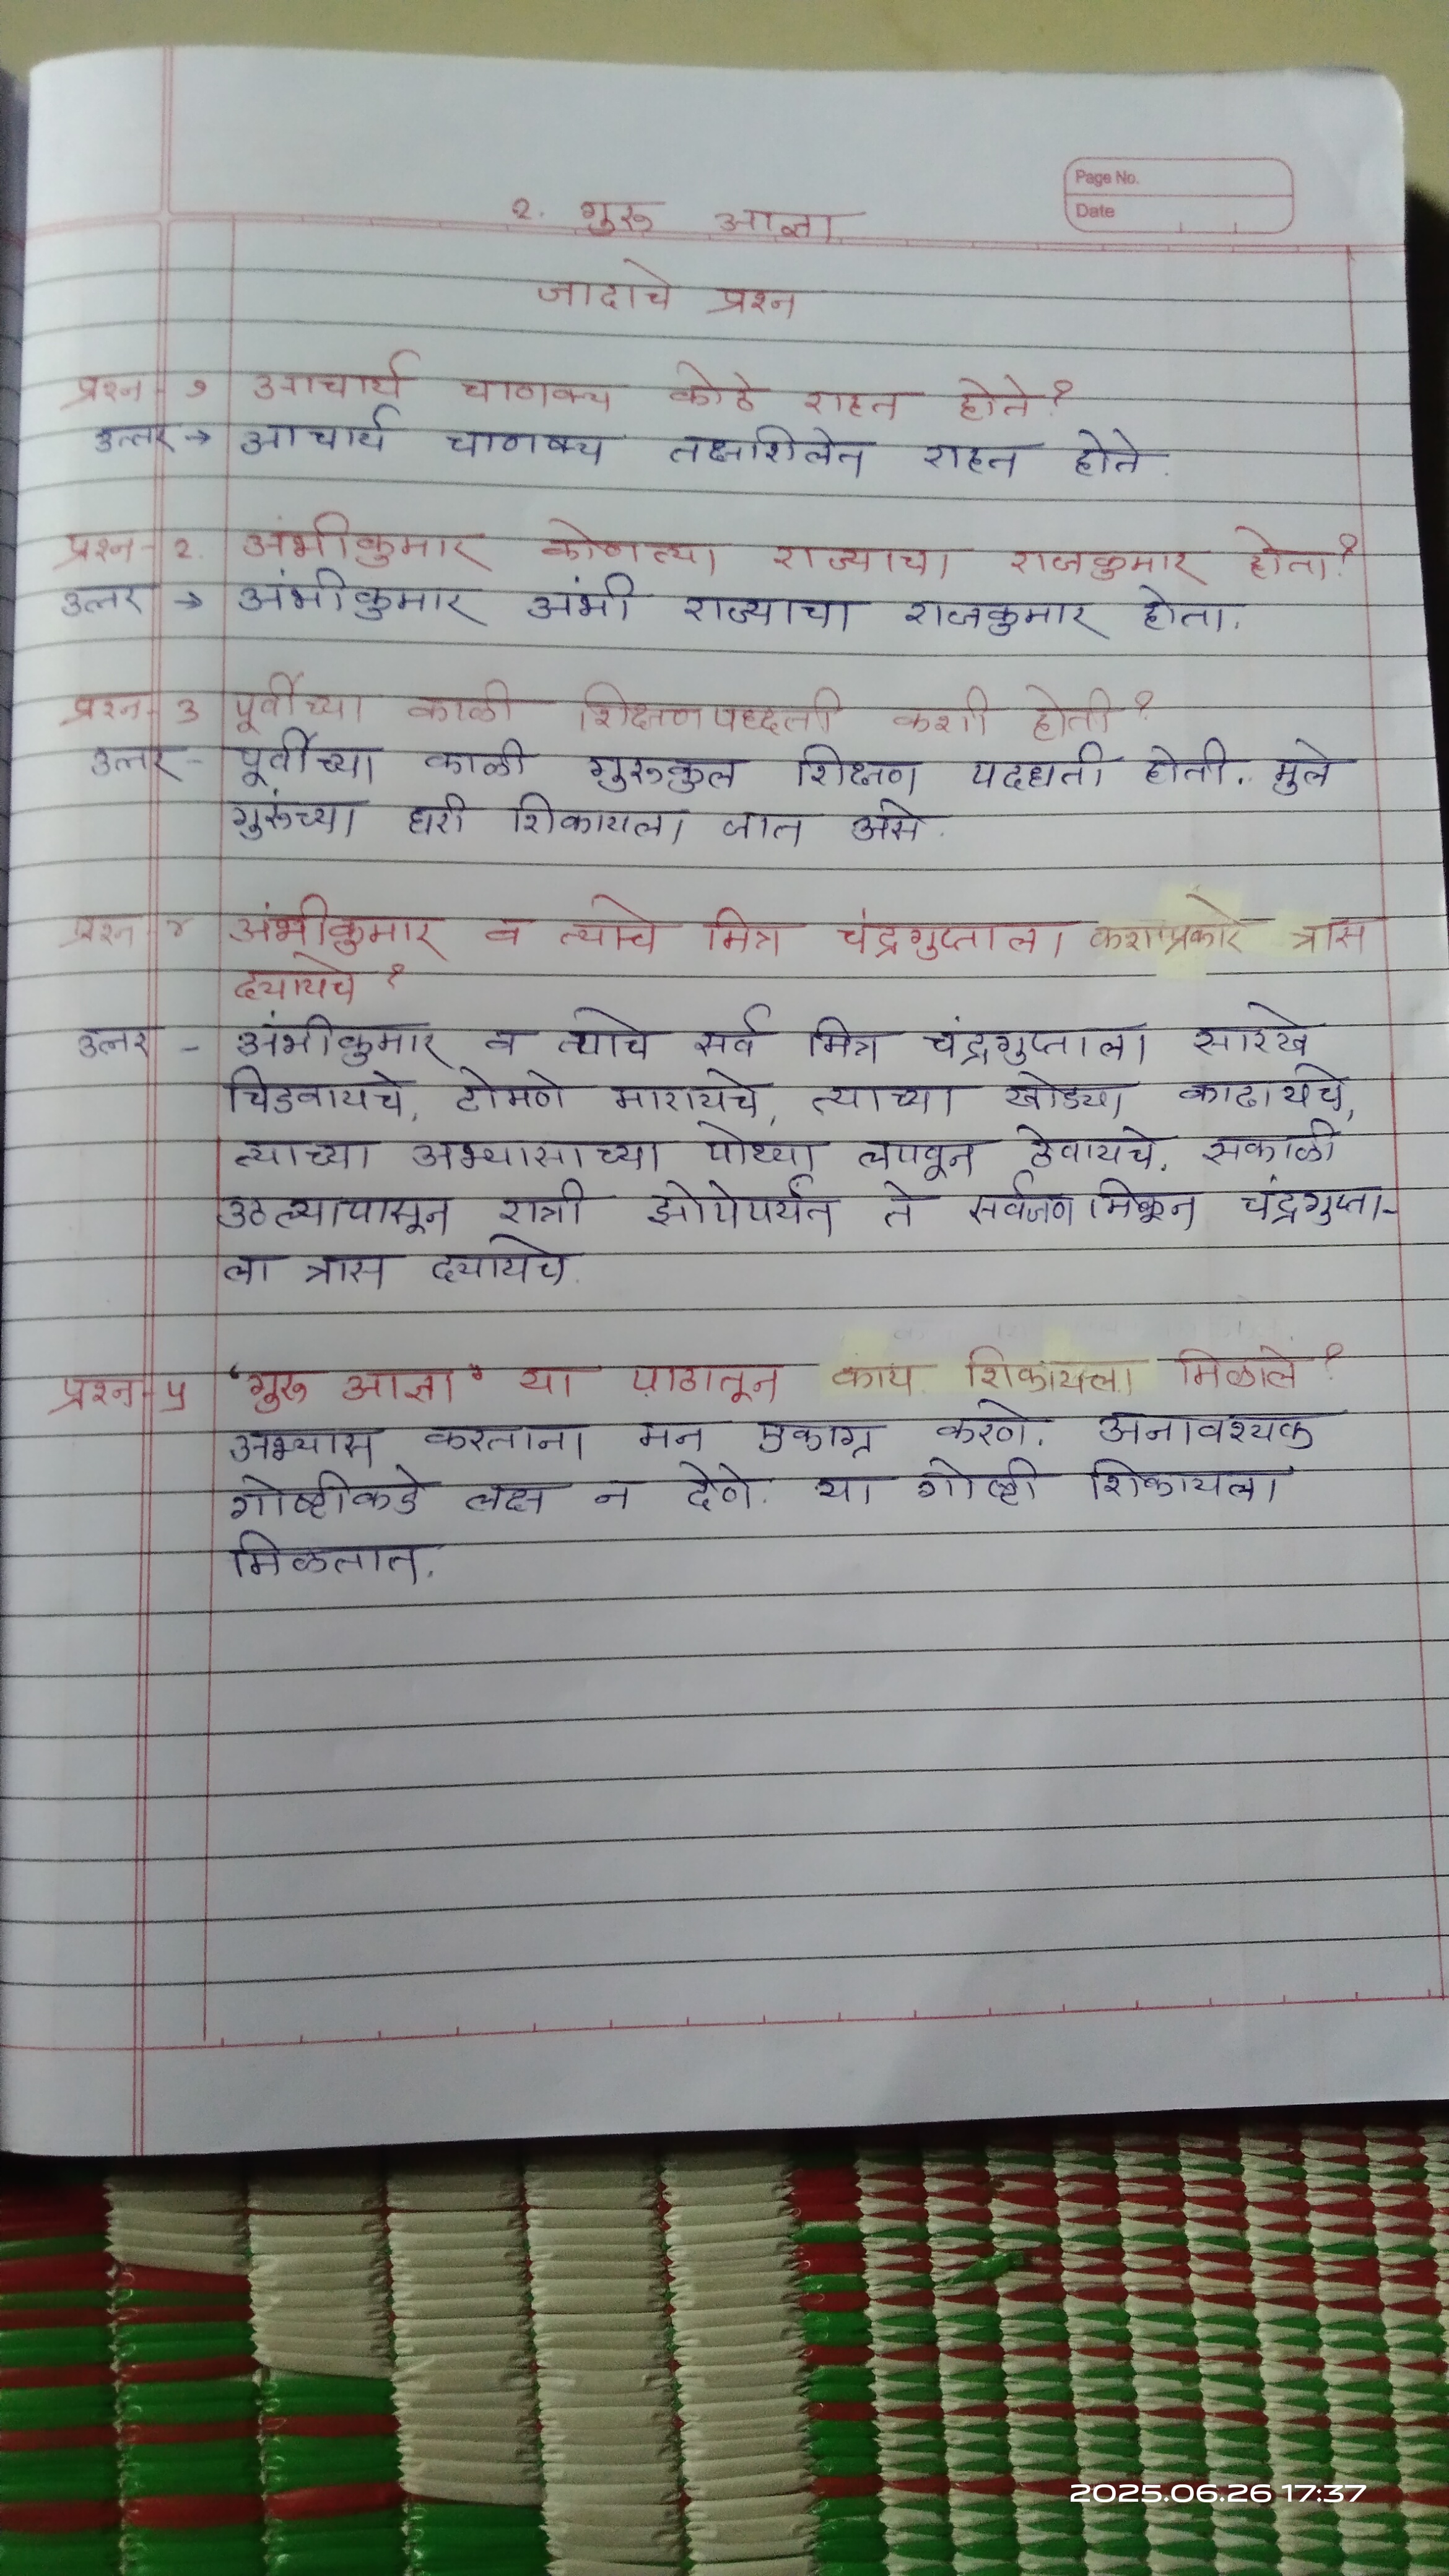 Page No.
Date
२. गुरु आज्ञा
जादाचे प्रश्न
प्रश्न- १ आचार्य चाणक्य कोठे राहत होते?
उत्तर → आचार्य चाणक्य तक्षशिलेत राहत होते.
प्रश्न- २. अंभीकुमार कोणत्या राज्याचा राजकुमार होता?
उत्तर → अंभीकुमार अंभी राज्याचा राजकुमार होता.
प्रश्न- ३ पूर्वीच्या काळी शिक्षणपध्दती कशी होती?
उत्तर - पूर्वीच्या काळी गुरुकुल शिक्षण पदधती होती. मुले
गुरुंच्या घरी शिकायला जात असे.
प्रश्न- ४ अंभीकुमार व त्याचे मित्र चंद्रगुप्ताला कशाप्रकारे त्रास
दयायचे?
उत्तर - अंभीकुमार व त्याचे सर्व मित्र चंद्रगुप्ताला सारखे
चिडवायचे, टोमणे मारायचे, त्याच्या खोड्या काढायचे,
त्याच्या अभ्यासाच्या पोथ्या लपवून ठेवायचे. सकाळी
उठल्यापासून रात्री झोपेपर्यंत ते सर्वजण मिळून चंद्रगुप्ता-
ला त्रास दयायचे.
प्रश्न- ५ 'गुरु आज्ञा' या पाठातून काय शिकायला मिळाले?
अभ्यास करताना मन एकाग्र करणे. अनावश्यक
गोष्टीकडे लक्ष न देणे. या गोष्टी शिकायला
मिळतात.
2025.06.26 17:37